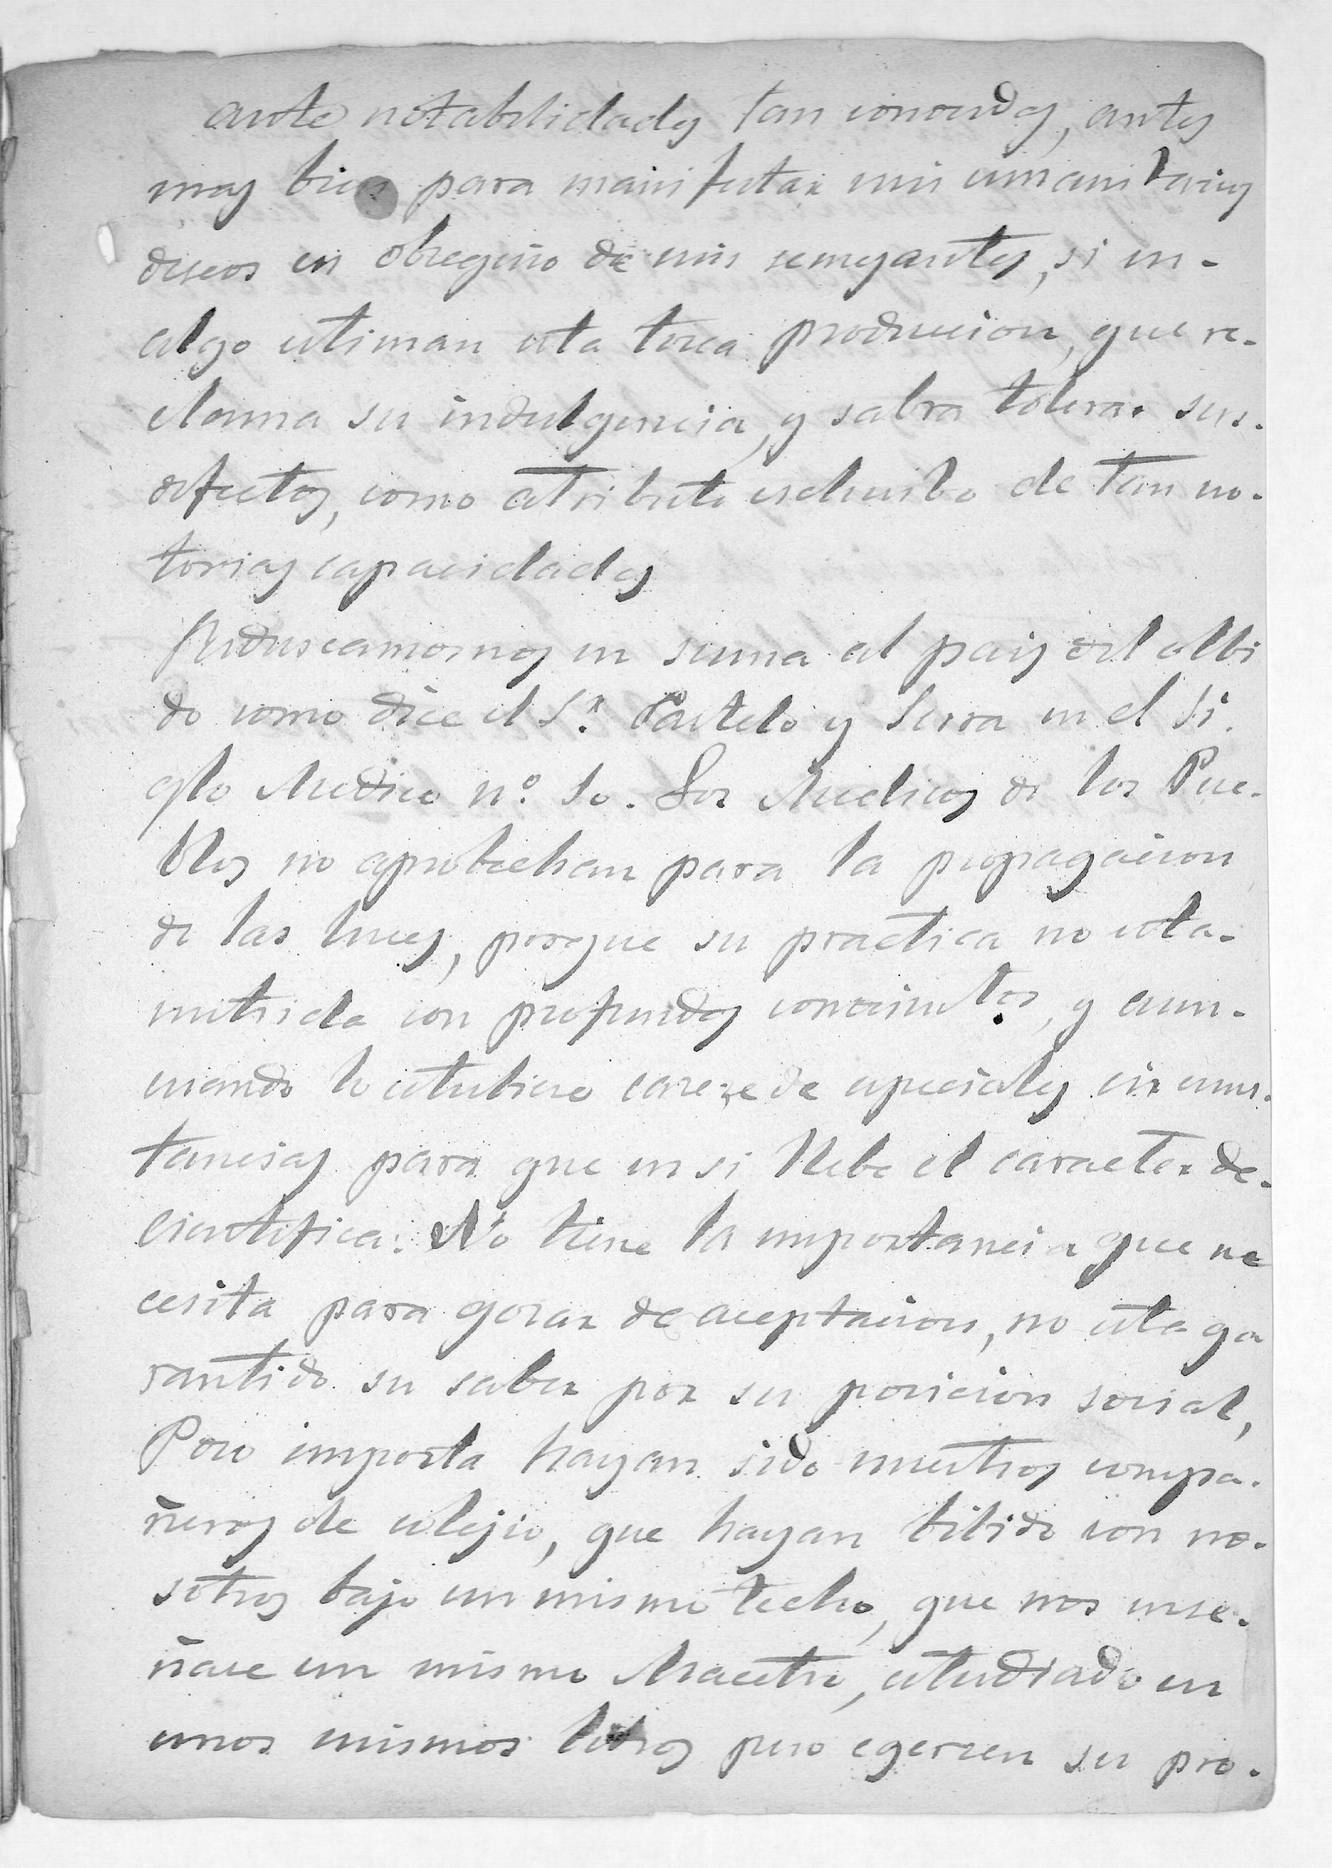 ante notabilidades tan conocidas, antes
mas bien para manifestar mis umanitarios
deseos en obsequio de mis semegantes, si en-
algo estiman esta tosca produccion, que re-
clama su indulgencia, y sabra tolerar sus-
defectos, como atributo esclusibo de tan no-
torias capacidades
Reduscamosnos en suma al pais del olbi
do como dice el Sr. Castelo y Serra en el Si-
glo Medico nº. 50. Los Medicos de los Pue-
blos no aprobechan para la propagacion
de las luces, porque su practica no esta-
nutrida con profundos conocimtos, y aun-
cuando lo estubiere carece de especiales circuns-
tancias para que en si llebe el caracter de-
cientifica: No tiene la importancia que ne
cesita para gozar de aceptacion, no esta ga
rantido su saber por su posicion social,
Poco importa hayan sido nuestros compa-
ñeros de colejio, que hayan bibido con no-
sotros bajo un mismo techo, que nos ense-
ñase un mismo Maestro, estudiado en
unos mismos libros pero egercen su pro-